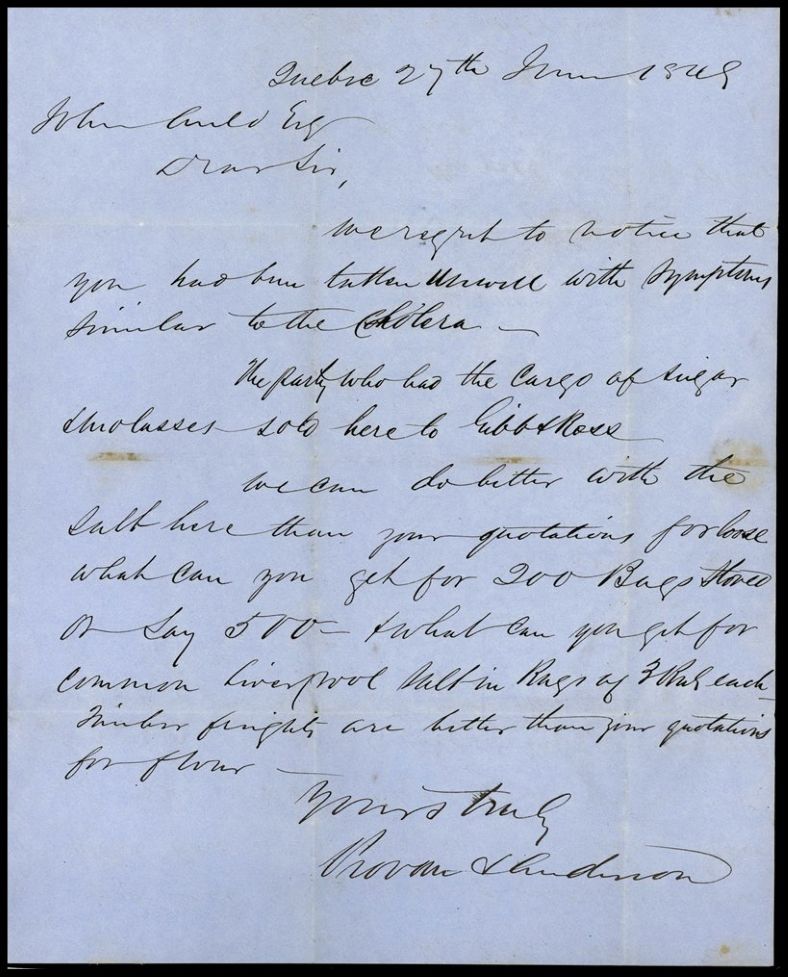 Quebec 27th June 1849
John Auld Esq
Dear Sir,
We regret to notice that
you had been taken unwell with symptoms
similar to the Cholera —
The party who had the Cargo of sugar
& molasses sold here to Gibb & Ross
We can do better with the
salt here than your quotations for loose
what can you get for 200 Bags Stoved
or say 500 – & what can you get for
common Liverpool salt in Bags of 3 each –
Timber freights are better than your quotations
for flour —
Yours truly
Provan & Anderson